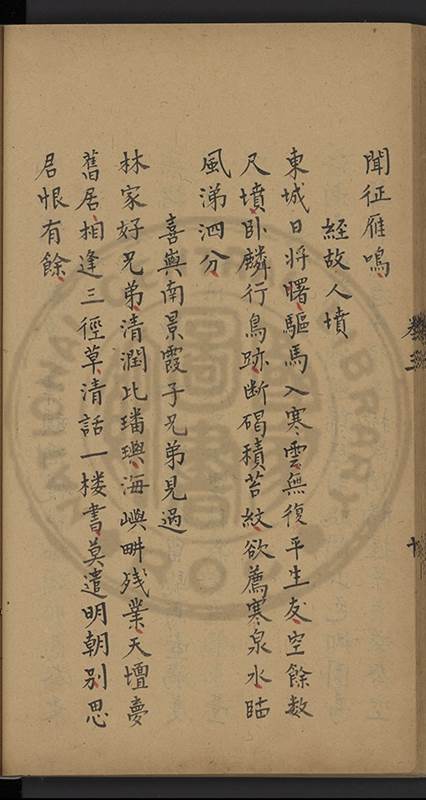 聞征雁鳴
經故人墳
東城日將曙驅馬入寒雲無復平生友空餘數
尺墳臥麟行鳥跡斷碣積苔紋欲薦寒泉水臨
風涕泗分
喜與南景霞子兄弟見過
林家好兄弟清潤比璠璵海嶼畊殘業天壇夢
舊居相逢三徑草清話一楼書莫遣明朝別思
君恨有餘